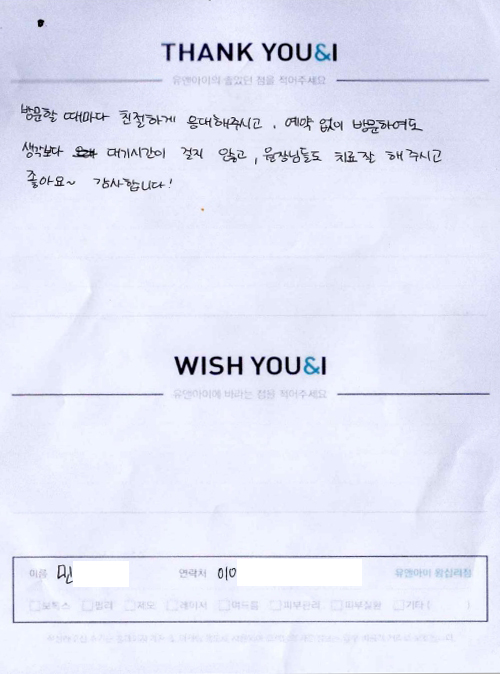 THANK YOU&I
유앤아이의 좋았던 점을 적어주세요
방문할 때마다 친절하게 응대해주시고, 예약 없이 방문하여도
생각보다 대기시간이 길지 않고, 원장님들도 치료 잘 해주시고
좋아요~ 감사합니다!
WISH YOU&I
유앤아이에 바라는 점을 적어주세요
이름 민 연락처 010 유앤아이 왕십리점
보톡스 필러 제모 레이저 여드름 피부관리 피부질환 기타 ( )